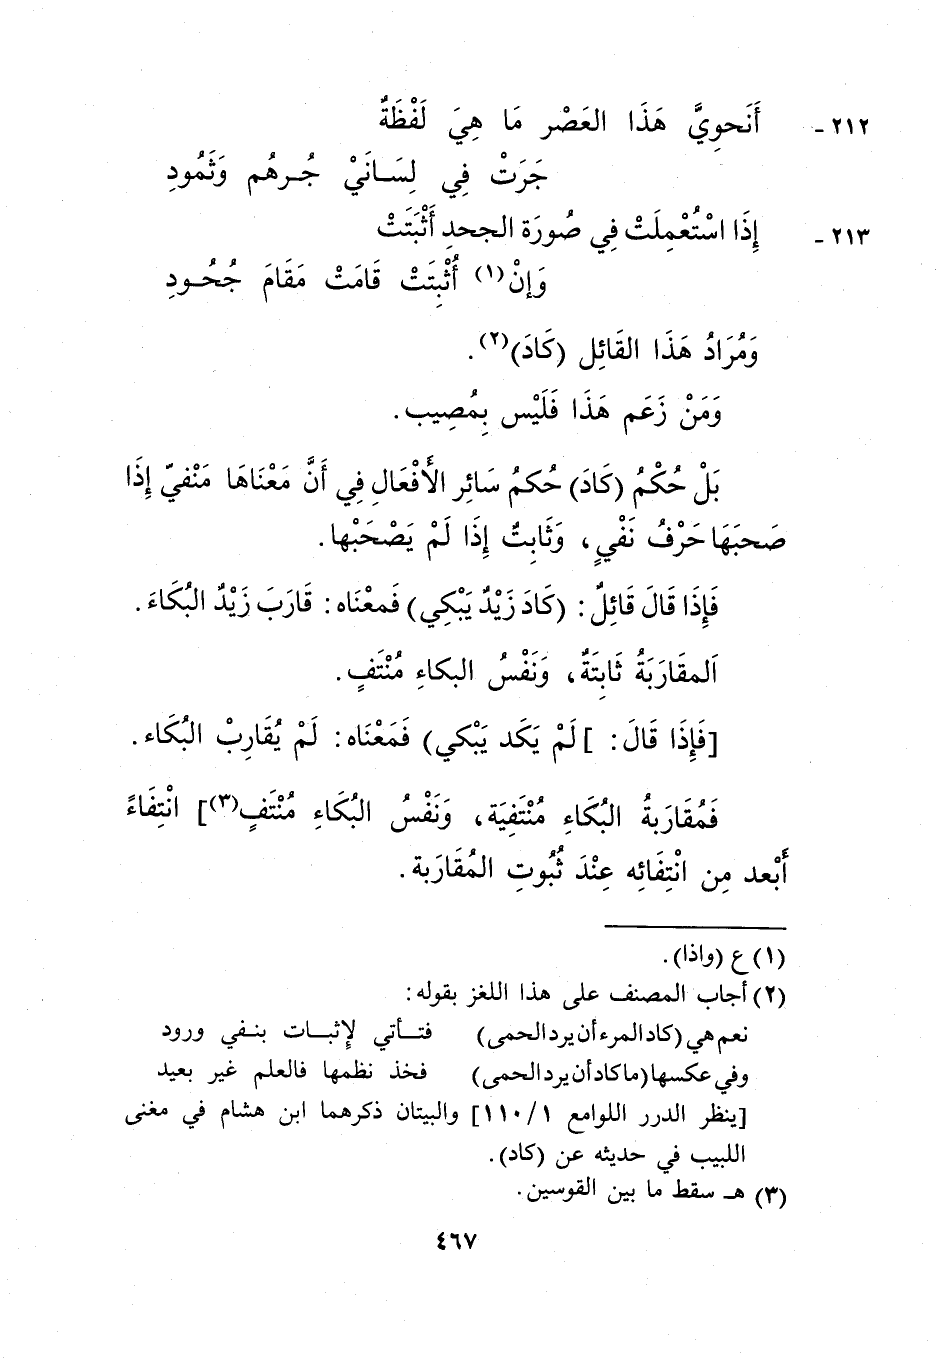 ٢١٢ - أَنَحوِيَّ هَذَا العَصْرِ مَا هِيَ لَفْظَةٌ
جَرَتْ فِي لِسَانَيْ جُرهُمِ وَثَمُودِ
٢١٣ - إِذَا اسْتُعْمِلَتْ فِي صُورَة الجحدِ أَثْبَتَتْ
وَإنْ(١) أُثْبِتَتْ قَامَتْ مَقَامَ جُحُودِ
وَمُرَادُ هَذَا القَائِلِ (كَادَ)(٢).
وَمَنْ زَعَم هَذَا فَلَيْس بِمُصِيب.
بَلْ حُكْمُ (كَادَ) حُكمُ سَائِرِ الأَفْعَالِ فِي أَنَّ مَعْنَاهَا مَنْفيّ إِذَا
صَحبَهَا حَرْفُ نَفْيٍ، وَثَابِتٌ إِذَا لَمْ يَصْحَبْها.
فَإِذَا قَالَ قَائِلٌ: (كَادَ زَيْدٌ يَبْكِي) فَمعْنَاه: قَارَبَ زَيْدٌ البُكَاءَ.
اَلمقَارَبَةُ ثَابِتَةٌ، وَنَفْسُ البكاءِ مُنْتَفٍ.
[فَإِذَا قَالَ: ] لَمْ يَكَد يَبْكي) فَمَعْنَاه: لَمْ يُقَارِبْ البُكَاء.
فَمُقَارَبةُ البُكَاءِ مُنْتَفِيَة، وَنَفْسُ البُكَاءِ مُنْتَفٍ(٣)] انْتِفَاءً
أَبْعد مِن انْتِفَائِه عِنْدَ ثُبُوتِ المُقَارَبة.
(١) ع (واذا).
(٢) أجاب المصنف على هذا اللغز بقوله:
نعم هي (كاد المرء أن يرد الحمى) فتأتي لإثبات بنفي ورود
وفي عكسها (ما كاد أن يرد الحمى) فخذ نظمها فالعلم غير بعيد
[ينظر الدرر اللوامع ١/ ١١٠] والبيتان ذكرهما ابن هشام في مغنى
اللبيب في حديثه عن (كاد).
(٣) هـ سقط ما بين القوسين.
٤٦٧